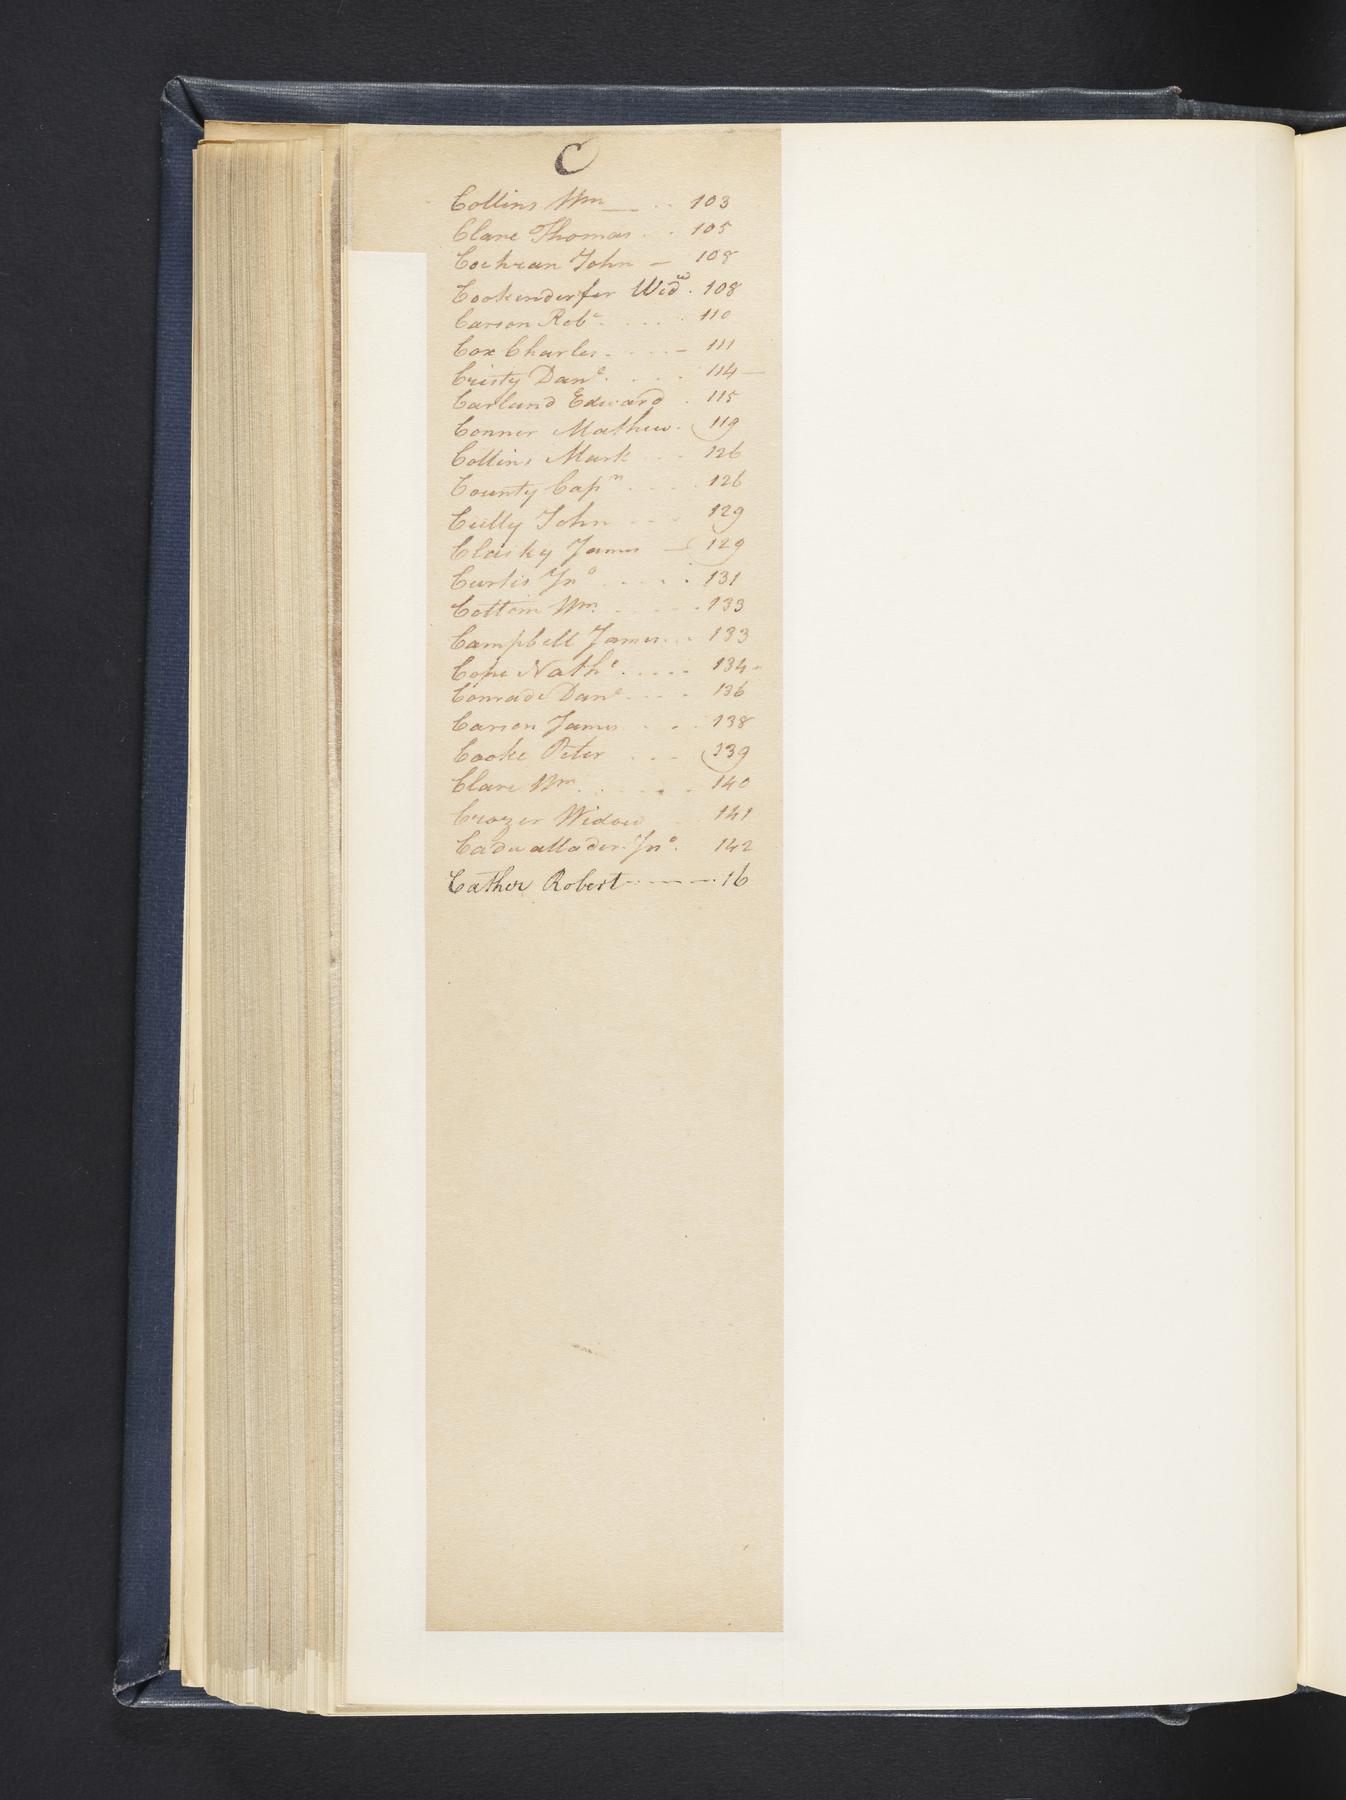 C
Collins Wm 103
Clare Thomas 105
Cochran John 108
Cookenderfer Widw 108
Carson Robt 110
Cox Charles 111
Cristy Danl 114
Carland Edward 115
Conner Mathew 119
Collins Mark 126
County Capn 126
Cully John 129
Clasky James 129
Curtis Jno 131
Cottom Wm 133
Campbell James 133
Cope Nathl 134
Conrade Danl 136
Carson James 138
Cooke Peter 139
Clare Wm 140
Crozer Widow 141
Cadwallader Jno 142
Cather Robert 16